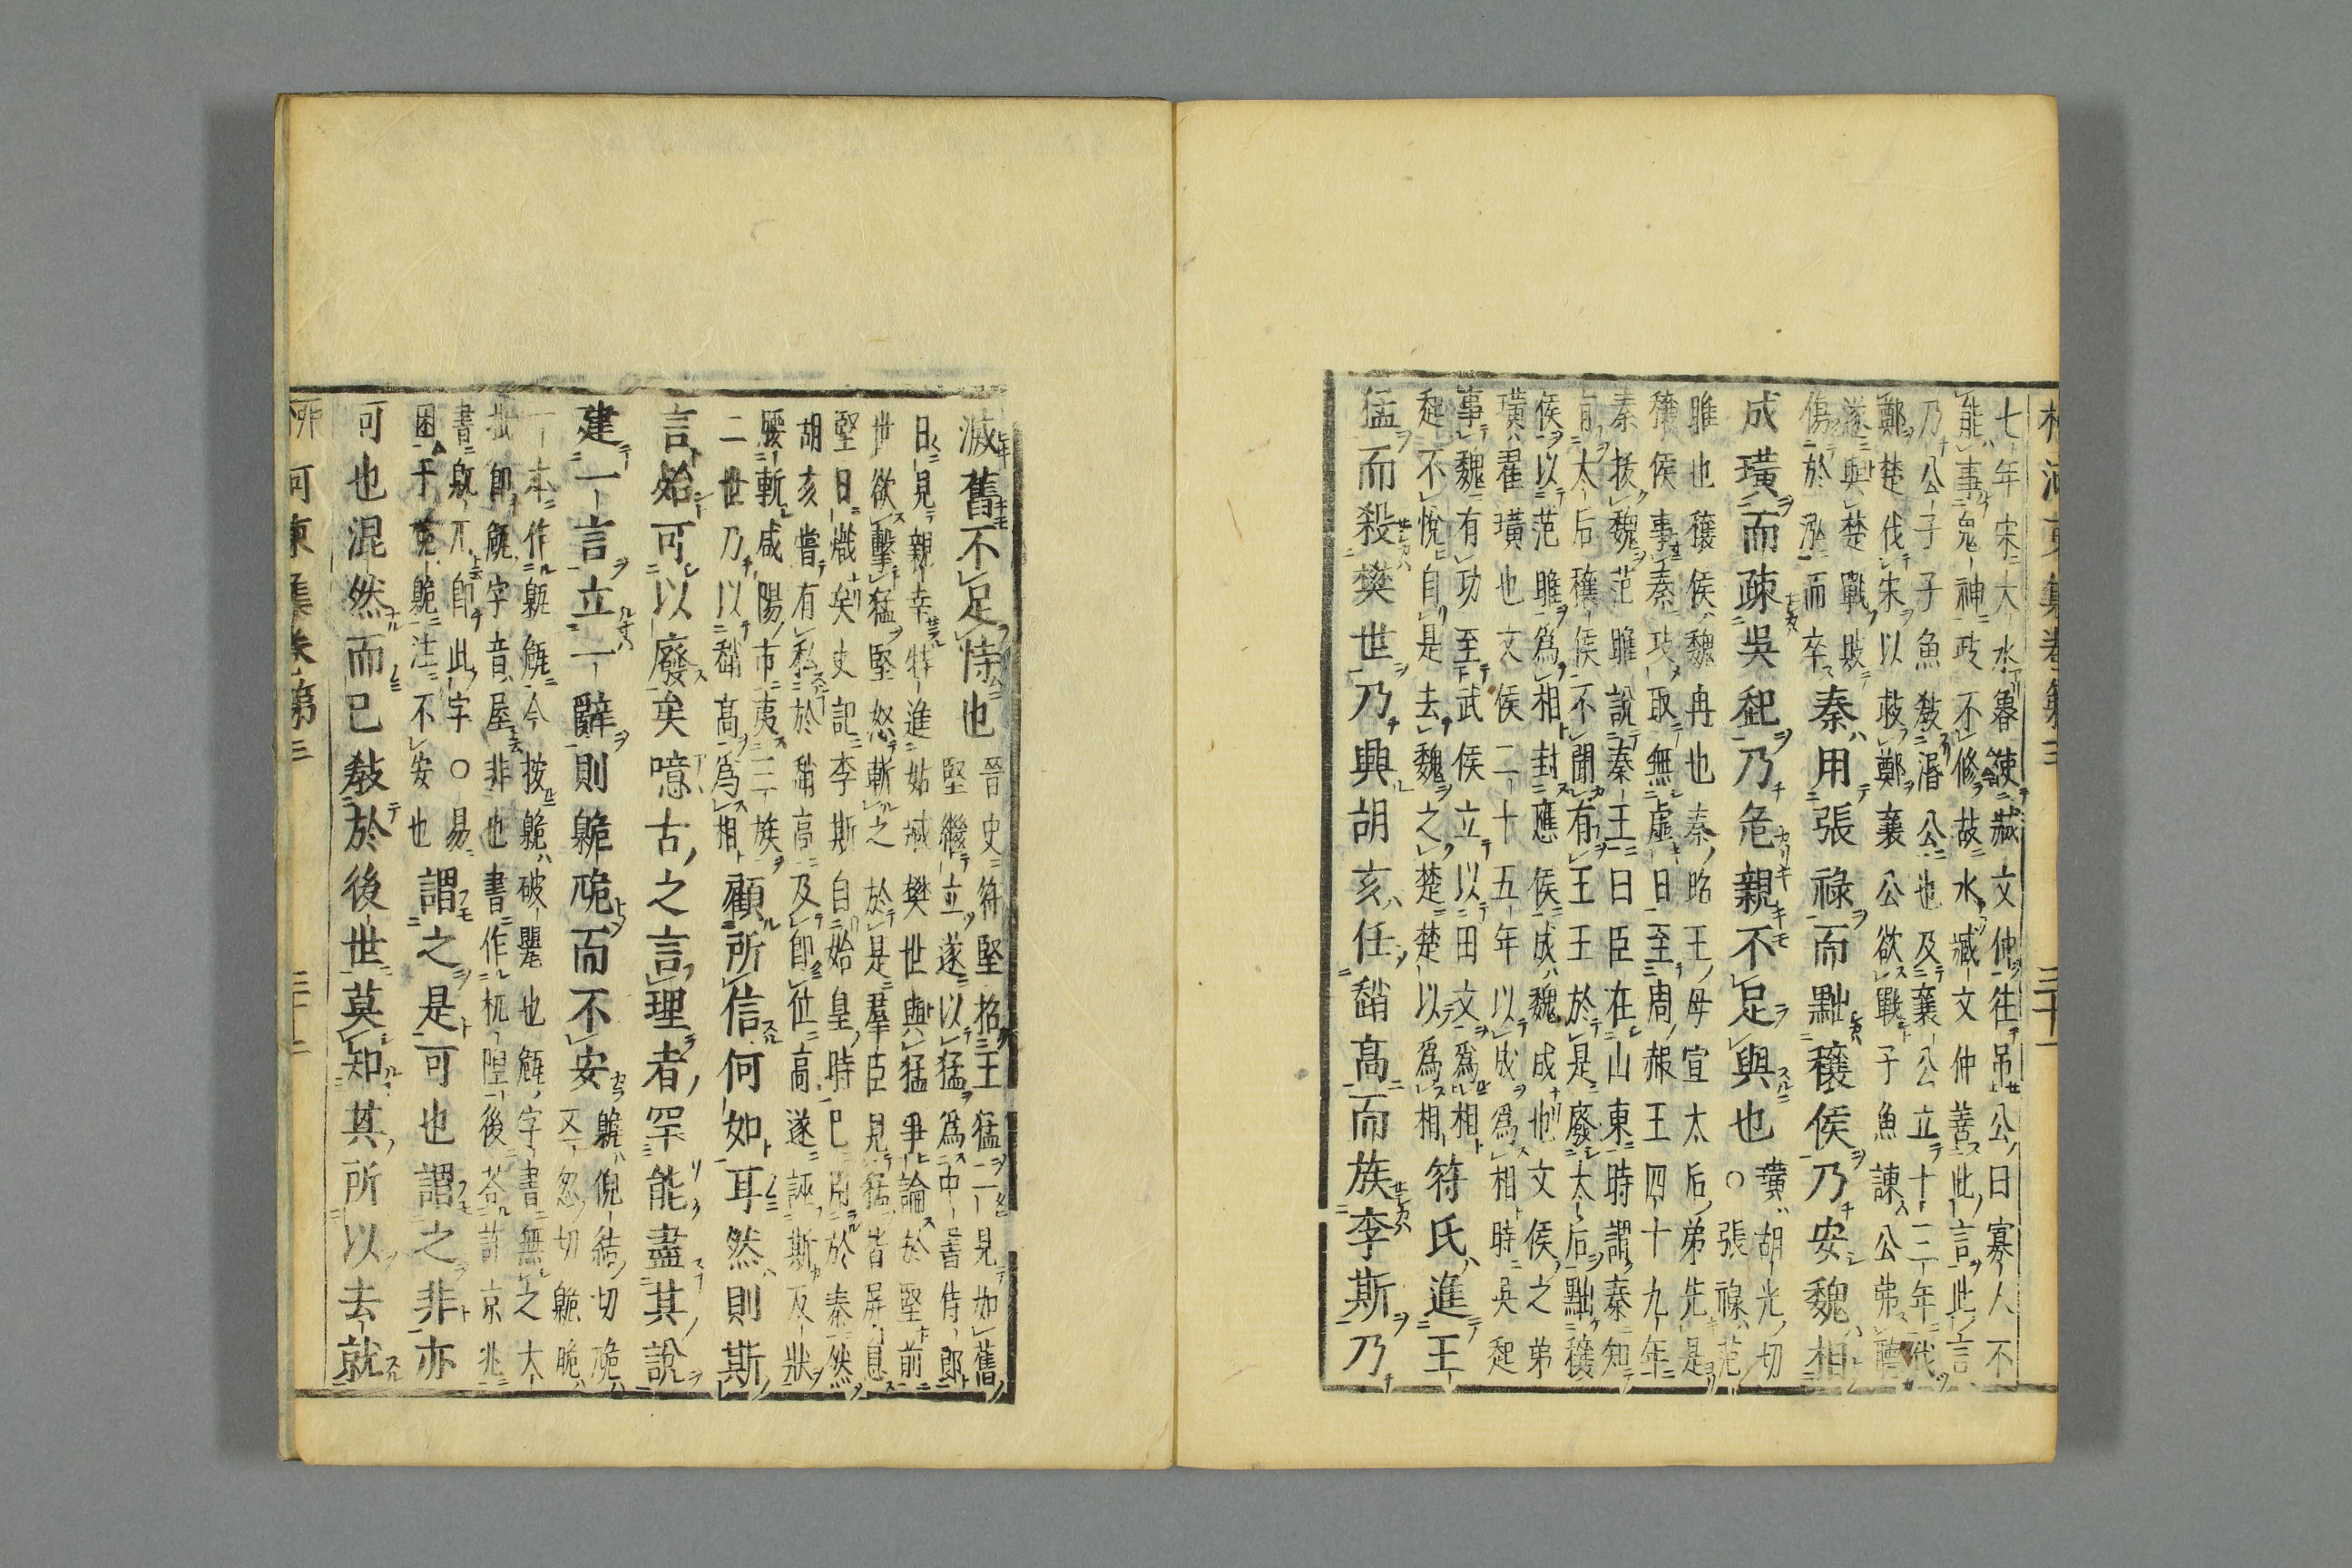 柳河東集卷第三 三十一
七年宋大水魯使臧文仲往弔公曰寡人不
能事鬼神政不修故水臧文仲善此言此言
乃公子子魚教湣公也及襄公立十三年伐
鄭楚伐宋以救鄭襄公欲戰子魚諫公弗聽
遂與楚戰敗
傷於泓而卒
秦用張祿而黜穰侯乃安魏相
成璜而疎吳起乃危親不足與也
璜胡光切
○張祿范
雎也穰侯魏冉也秦昭王母宣太后弟先是
穰侯事秦攻取無虛日至周赧王四十九年
秦拔魏范雎說秦王曰臣在山東時謂秦知
有太后穰侯不聞有王王於是廢太后黜穰
侯以范雎爲相封應侯成魏成也文侯之弟
璜翟璜也文侯二十五年以成爲相時吳起
事魏有功至武侯立以田文爲相
起不悅自是去魏之楚楚以爲相
符氏進王
猛而殺樊世乃興胡亥任趙高而族李斯乃
滅舊不足恃也
晉史符堅招王猛一見如舊
堅繼立遂以猛爲中書侍郎
日見親幸特進姑臧樊世與猛爭論於堅前
世欲擊猛堅怒斬之於是羣臣見猛皆屏息
堅曰熾矣史記李斯自始皇時已用於秦然
胡亥嘗有私於趙高及即位高遂誣斯反狀
腰斬咸陽市夷三族
二世乃以趙高爲相
顧所信何如耳然則斯
言殆可以廢矣噫古之言理者罕能盡其說
建一言立一辭則臲卼而不安
臲倪結切卼
又忽切臲卼
一本作臲今按臲破甖也字書無之大
抵即字音屋非也書作杌隉後荅許京兆
書兀即此字○易
困于臲注不安也
謂之是可也謂之非亦
可也混然而已教於後世莫知其所以去就
柳河東集卷第三 三十二